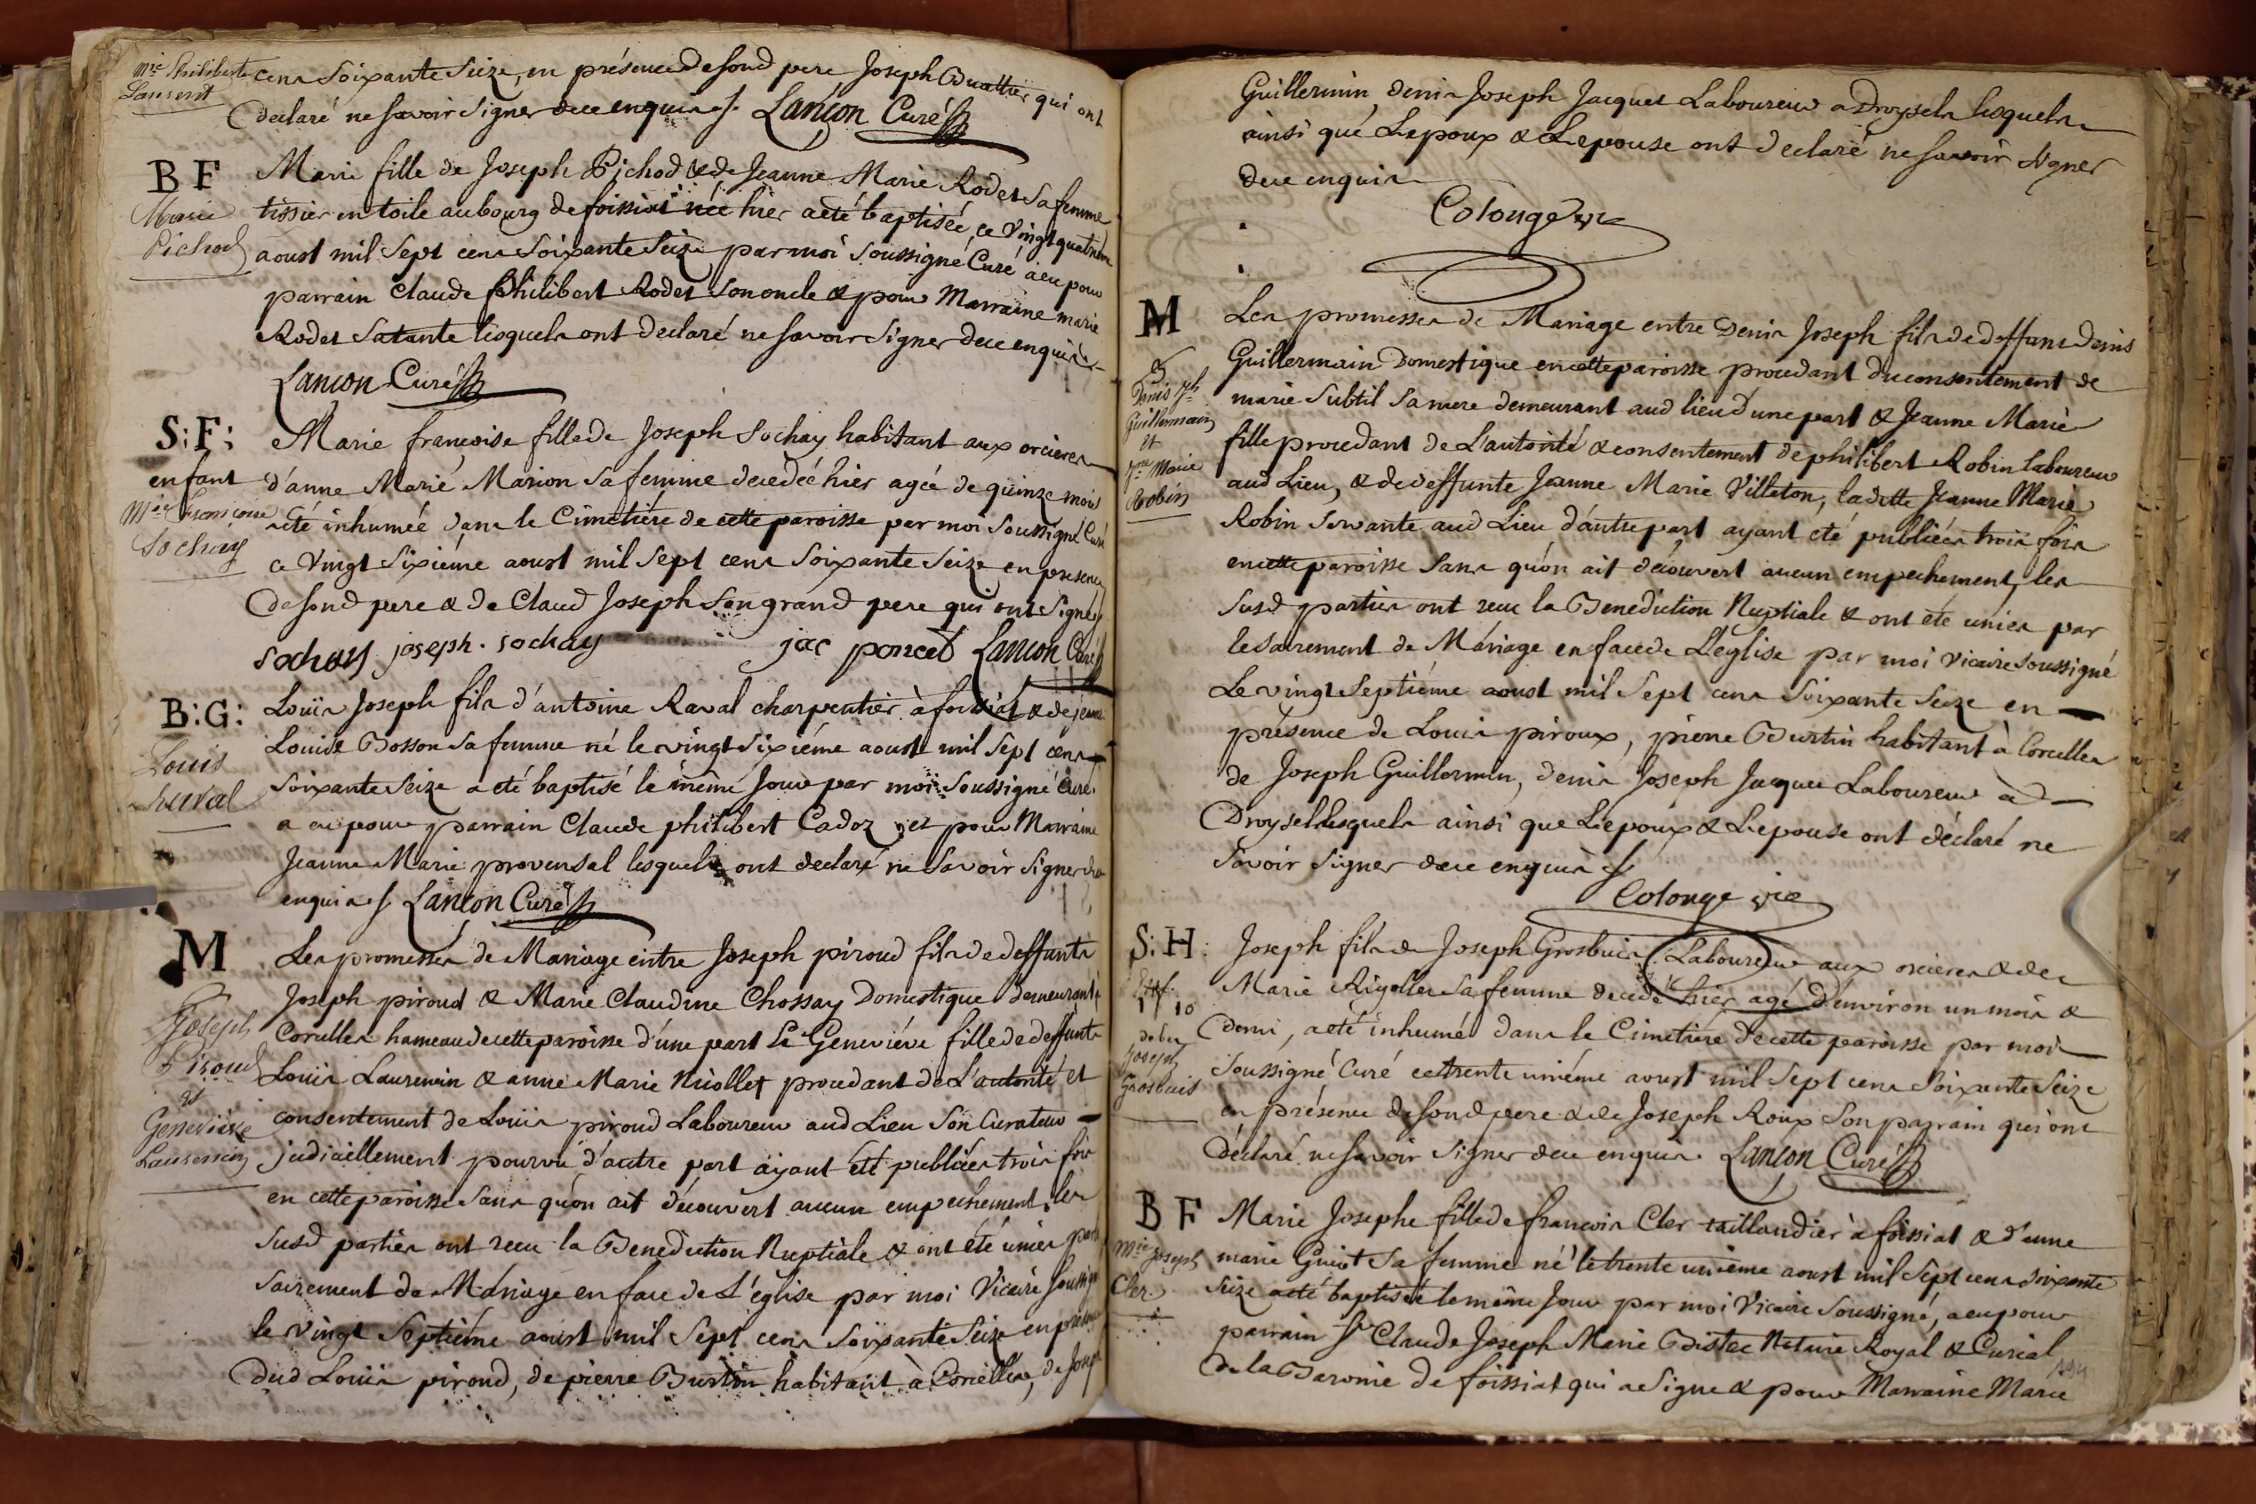 mie Philiberte
Laurent
cens Soixante Seize, en présence de sond pere Joseph qui ont
declaré ne savoir signer de ce enquis Lançon Curé
B F
Marie
Pichod
Marie fille de Joseph Pichod & de Jeanne Marie Rodet Sa femme
tissier en toile au bourg de foissiat née hier a eté baptisée, ce Vingt quatrieme
aoust mil Sept cens Soixante Seize par moi Soussigné Curé a eu pour
parrain Claude philibert Rodet Son oncle & pour Marraine marie
Rodet Sa tante lesquels ont declaré ne savoir Signer de ce enquis
Lancon Curé
S: F:
enfant
Mie francoise
Sochay
Marie francoise fille de Joseph Sochay habitant aux orcieres
d'anne Marie Marion Sa femme decedée hier agée de quinze mois
a eté inhumée dans le Cimetiére de cette paroisse par moi Soussigné Curé
ce Vingt Sixiéme aoust mil Sept cens Soixante Seize en presence
de sond pere & de Claud Joseph Son grand pere qui ont Signé
sochay joseph . sochay jac poncet Lancon Curé
B: G:
Louis
Raval
Louis Joseph fils d'antoine Raval charpentier à foissiat & de jeanne
Louise Bosson Sa femme né le vingt Sixiéme aoust mil Sept cens
Soixante Seize a eté baptisé le même Jour par moi Soussigné Curé
a eu pour parrain Claude philibert Cadoz et pour Marraine
Jeanne Marie provensal lesquels ont declaré ne Savoir Signer de ce
enquis Lancon Curé
M
Joseph
Piroud
et
Genevieve
Laurencin
Les promesses de Mariage entre Joseph piroud fils de deffunts
Joseph piroud & Marie Claudine Chossay Domestique demeurant à
Corcelles hameau de cette paroisse d'une part & Geneviéve fille de deffunts
Louis Laurencin & anne Marie Niollet procedant de L'autorité et
consentement de Louis piroud Laboureur aud Lieu Son Curateur
judiciellement pourvu d'autre part ayant été publiées trois fois
en cette paroisse Sans qu'on ait découvert aucun empechement, les
Susd parties ont recu la Benediction Nuptiale & ont été unies par le
Sairement de Mariage en face de L'église par moi Vicaire Soussigné
le vingt Septiéme aoust mil Sept cens Soixante Seize en présence
Dud Louis piroud, de pierre Burtin habitant à Corcelles, de Joseph
Guillermin, denis Joseph Jacquet Laboureur a Droysels lesquels
ainsi que L'epoux & L'epouse ont declaré ne savoir signer
de ce enquis
Colonge vic
M
Denis Jh
Guillermain
et
Jne Marie
Robin
Les promesses de Mariage entre Denis Joseph fils de deffunt Denis
Guillermain Domestique en cette paroisse procedant du consentement de
marie Subtil Sa mere demeurant aud lieu d'une part & Jeanne Marie
fille procedant de L'autorité & consentement de philibert Robin laboureur
aud Lieu, & de deffunte Jeanne Marie Villeton, ladite Jeanne Marie
Robin Servante aud Lieu d'autre part ayant eté publiées trois fois
en cette paroisse Sans qu'on ait découvert aucun empechement, les
Susd parties ont recu la Benediction Nuptiale & ont eté unies par
le Sairement de Mariage en face de L'église par moi Vicaire Soussigné
Le vingt Septiéme aoust mil Sept cens Soixante Seize en
présence de Louis piroux, pierre Burtin habitant à Corcelles
de Joseph Guillermin, denis Joseph Jacquet Laboureur à
Droysels lesquels ainsi que L'epoux & L'epouse ont déclaré ne
Savoir Signer de ce enquis
Colonge vic
S: H:
Joseph
Grosbuis
Joseph fils de Joseph Grosbuis Laboureur aux orcieres & de
Marie Rigollet Sa femme decedé hier agé d'environ un mois &
demi, a eté inhumé dans le Cimetiére de cette paroisse par moi
Soussigné Curé ce trente uniéme aoust mil Sept cens Soixante Seize
en présence de sond pere & de Joseph Roux Son parrain qui ont
déclaré ne savoir Signer de ce enquis. Lançon Curé
B F
Mie Joseph
Cler
Marie Josephe fille de francois Cler taillandier à foissiat & d'anne
marie Guiot Sa femme né le trente uniéme aoust mil Sept cens Soixante
Seize a eté baptisée le même Jour par moi Vicaire Soussigné, a eu pour
parrain Sr Claude Joseph Marie Notaire Royal & Curial
de la Baronie de foissiat qui a Signé & pour Marraine Marie